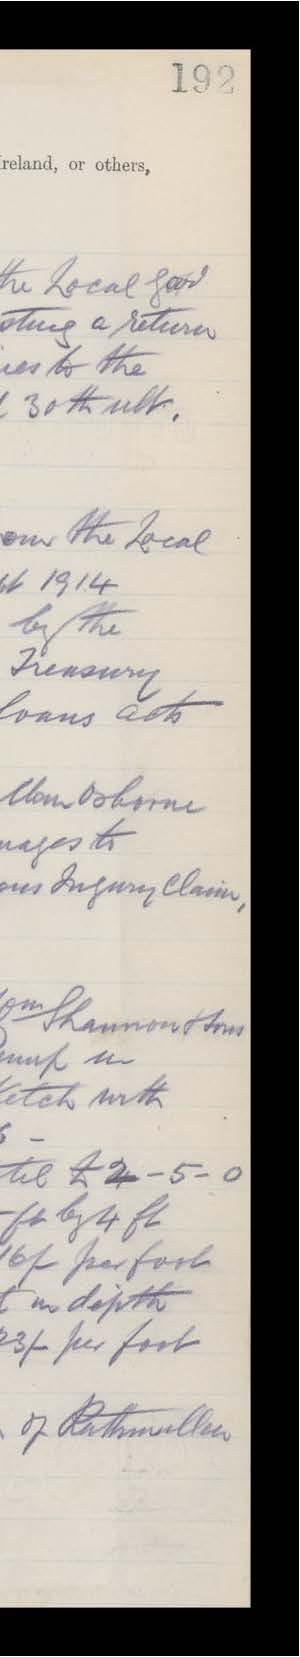 192
Ireland, or others,
the Local Govd
sting a return
ies to the
30th ult.
the Local
1914
by the
Treasury
Loans Acts
Osborne
mages to
ous Injury Claim,
Shannon & Sons
ump in
ketch with
-
£2-5-0
ft by 4 ft
16/- per foot
in depth
23/- per foot
of Rathmullan